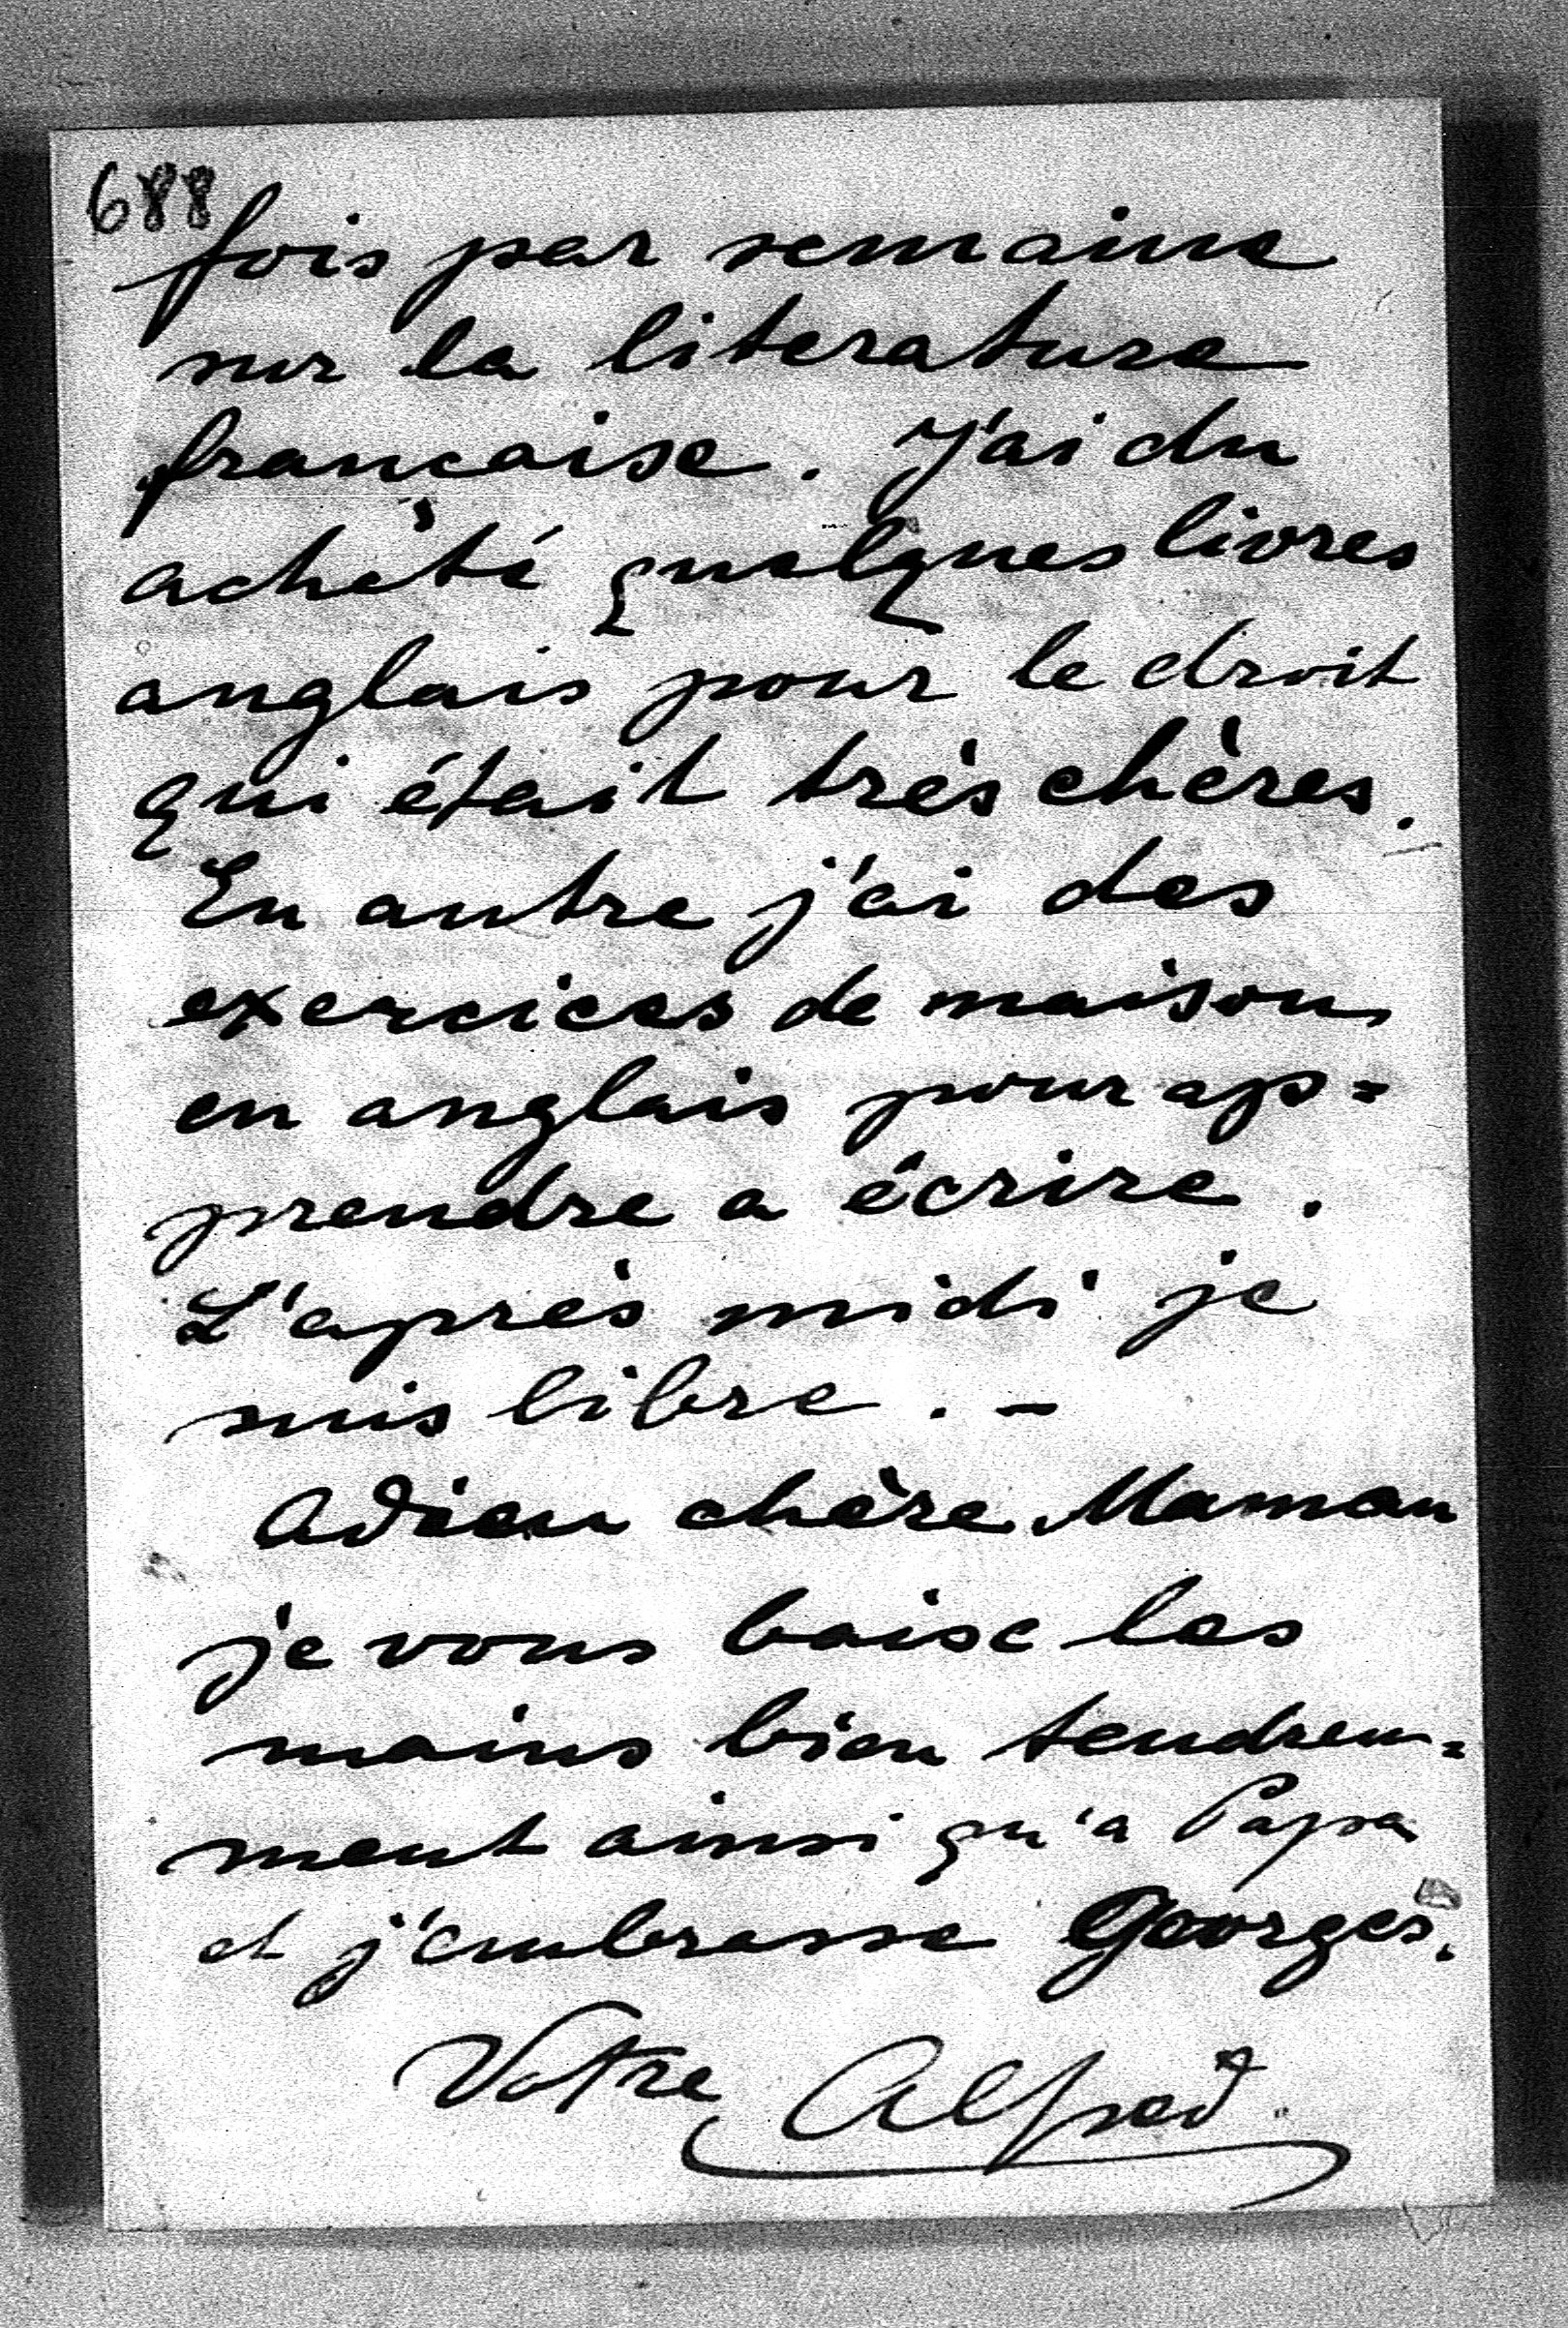 688
fois par semaine
sur la literature
francaise. J'ai du
achèté quelques livres
anglais pour le droit
qui était très chères.
En autre j'ai des
exercices de maison
en anglais pour ap=
prendre a écrire.
L'après midi je
suis libre. -
Adieu chère Maman
je vous baise les
mains bien tendrem=
ment ainsi qu'a Papa
et j'embrasse Georges.
Votre Alfred.